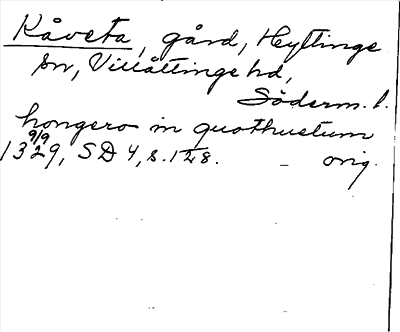 Kåveta, gård, Hyltinge
sn, Villåttinge hd,
Söderm. l.
hongero in quothustum
9/9
1329, SD 4, s. 128. – orig.